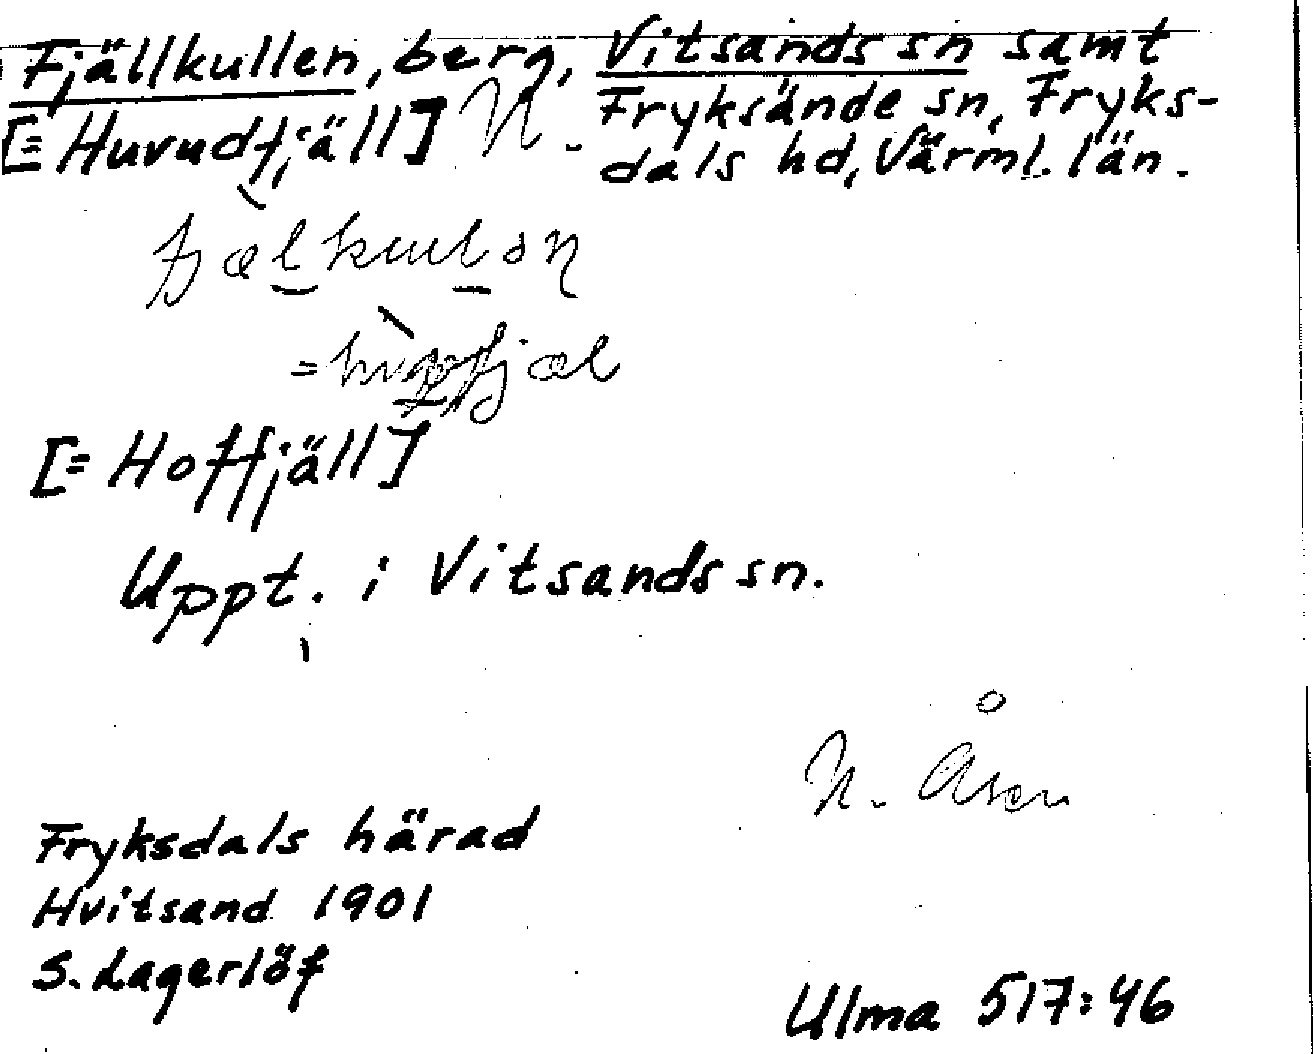 Fjällkullen, berg, Vitsands sn samt
[= Huvudfjäll] N. Fryksände sn, Fryks-
dals hd, Värml. län.
[= Hoffjäll]
Uppt. i Vitsands sn.
N. Åsen
Fryksdals härad
Hvitsand 1901
S. Lagerlöf
Ulma 517:46